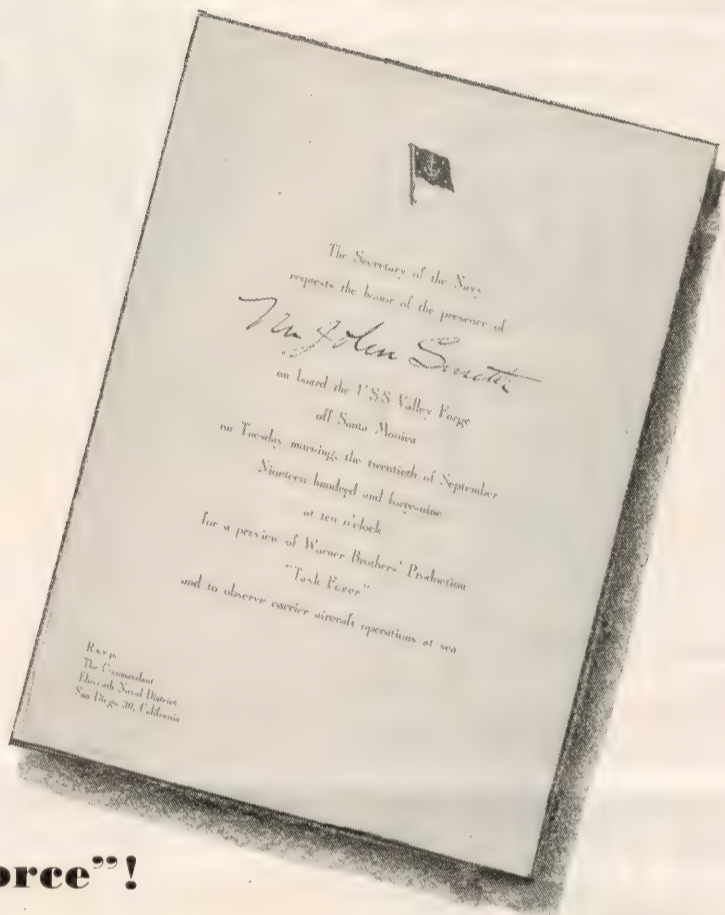 The Secretary of the Navy
requests the honor of the presence of
Mr John Smith
on board the USS Valley Forge
off Santa Monica
on Tuesday morning, the twentieth of September
Nineteen hundred and forty-nine
at ten o'clock
for a preview of Warner Brothers' Production
"Task Force"
and to observe carrier aircraft operations at sea
R.s.v.p.
The Commandant
Eleventh Naval District
San Diego 30, California
orce"!